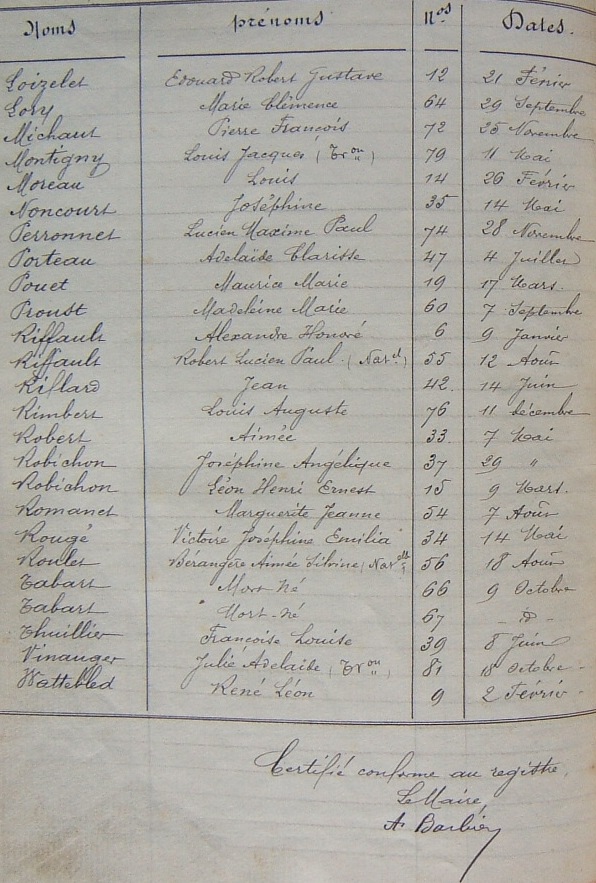 Noms Prénoms Nos Dates.
Loizelet Edouard Robert Gustave 12 21 Février
Lory Marie Clémence 64 29 Septembre
Michaut Pierre François 72 25 Novembre
Montigny Louis Jacques (Tron) 79 11 Mai
Moreau Louis 14 26 Février
Noncourt Joséphine 35 14 Mai
Perronnet Lucien Maxime Paul 74 28 Novembre
Porteau Adelaïde Clarisse 47 4 Juillet
Pouet Maurice Marie 19 17 Mars.
Proust Madeleine Marie 60 7 Septembre
Riffault Alexandre Honoré 6 9 Janvier
Riffault Robert Lucien Paul. (Nat.el) 55 12 Août
Rillard Jean 42. 14 Juin
Rimbert Louis Auguste 76 11 décembre
Robert Aimée 33. 7 Mai
Robichon Joséphine Angélique 37 29 "
Robichon Léon Henri Ernest 15 9 Mars.
Romanet Marguerite Jeanne 54 7 Août
Rougé Victoire Joséphine Emilia 34 14 Mai
Roulet Bérangère Aimée Silvine (Nat.elle) 56 18 Août
Tabart Mort Né 66 9 Octobre
Tabart Mort-né 67 - id -
Thuillier Françoise Louise 39 8 Juin
Vinauger Julie Adelaïde (Tron) 81 18 Octobre -
Wattebled René Léon 9 2 Février -
Certifié conforme au registre.
Le Maire,
A Barbier